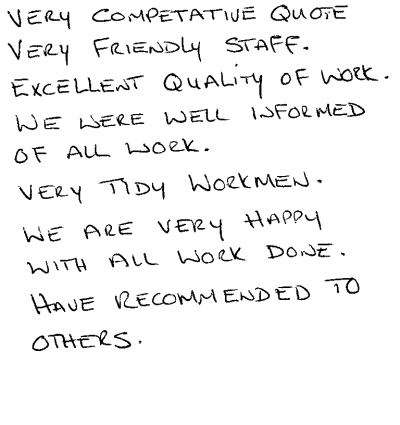 VERY COMPETATIVE QUOTE
VERY FRIENDLY STAFF.
EXCELLENT QUALITY OF WORK.
WE WERE WELL INFORMED
OF ALL WORK.
VERY TIDY WORKMEN.
WE ARE VERY HAPPY
WITH ALL WORK DONE.
HAVE RECOMMENDED TO
OTHERS.